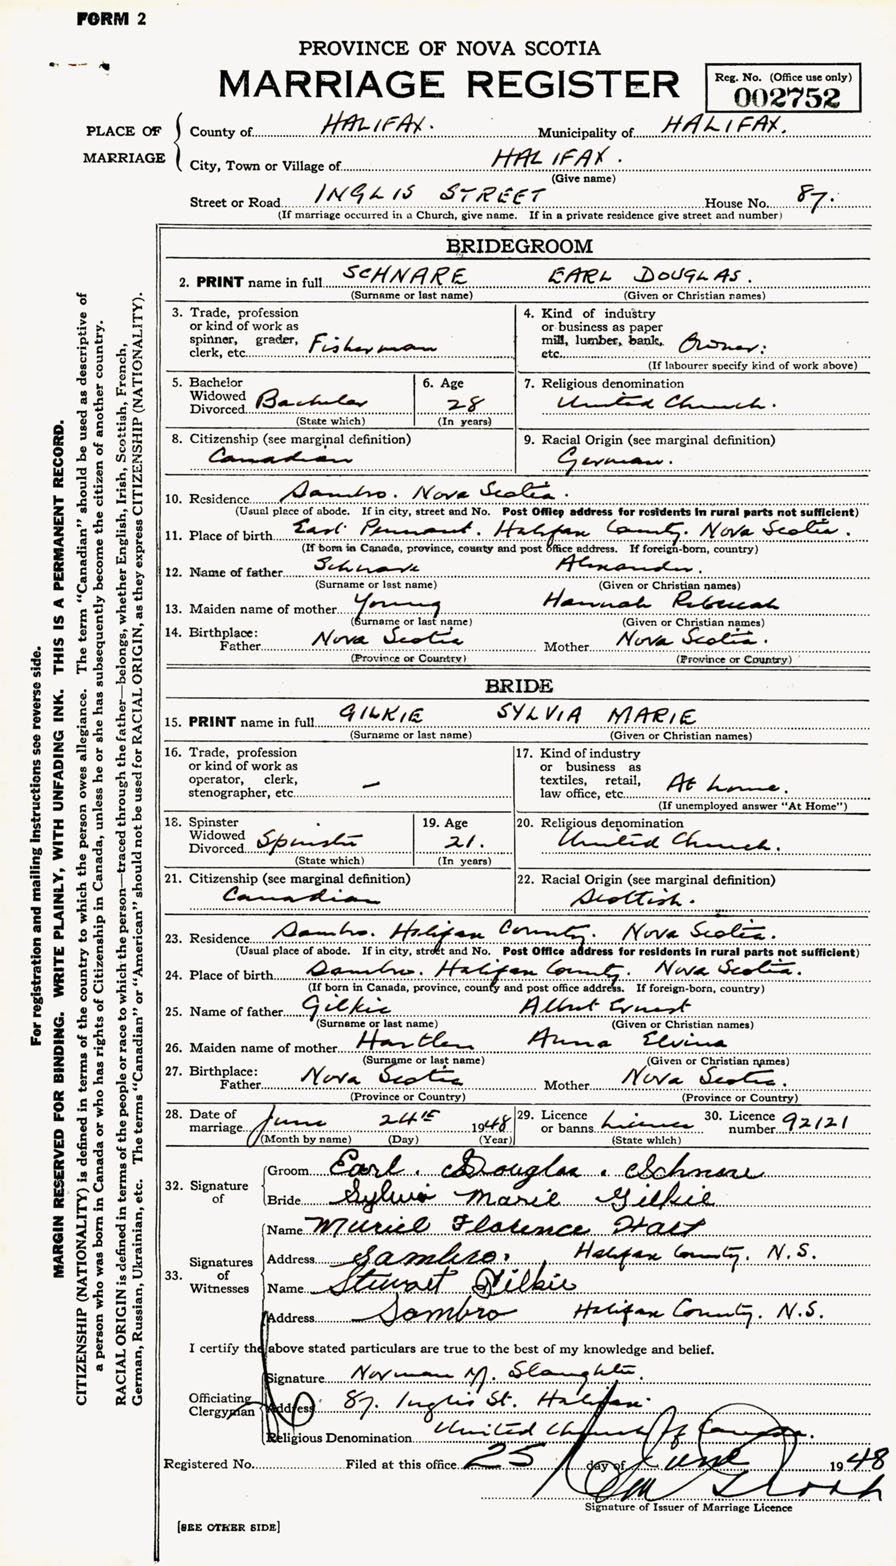 FORM 2
PROVINCE OF NOVA SCOTIA
MARRIAGE REGISTER
Reg. No. (Office use only)
002752
PLACE OF MARRIAGE
County of HALIFAX. Municipality of HALIFAX.
City, Town or Village of HALIFAX.
(Give name)
Street or Road INGLIS STREET House No. 87.
(If marriage occurred in a Church, give name. If in a private residence give street and number)
BRIDEGROOM
2. PRINT name in full SCHNARE EARL DOUGLAS.
(Surname or last name) (Given or Christian names)
3. Trade, profession or kind of work as spinner, grader, clerk, etc. Fisherman
4. Kind of industry or business as paper mill, lumber, bank, etc. Owner.
(If labourer specify kind of work above)
5. Bachelor Widowed Divorced Bachelor
(State which)
6. Age 28
(In years)
7. Religious denomination
United Church.
8. Citizenship (see marginal definition)
Canadian
9. Racial Origin (see marginal definition)
German.
10. Residence Sambro. Nova Scotia.
(Usual place of abode. If in city, street and No. Post Office address for residents in rural parts not sufficient)
11. Place of birth East Pennant. Halifax County. Nova Scotia.
(If born in Canada, province, county and post office address. If foreign-born, country)
12. Name of father Schnare Alexander.
(Surname or last name) (Given or Christian names)
13. Maiden name of mother Young Hannah Rebecah
(Surname or last name) (Given or Christian names)
14. Birthplace:
Father Nova Scotia Mother Nova Scotia.
(Province or Country) (Province or Country)
BRIDE
15. PRINT name in full GILKIE SYLVIA MARIE
(Surname or last name) (Given or Christian names)
16. Trade, profession or kind of work as operator, clerk, stenographer, etc. —
17. Kind of industry or business as textiles, retail, law office, etc. At home.
(If unemployed answer "At Home")
18. Spinster Widowed Divorced Spinster
(State which)
19. Age 21.
(In years)
20. Religious denomination
United Church.
21. Citizenship (see marginal definition)
Canadian
22. Racial Origin (see marginal definition)
Scottish.
23. Residence Sambro. Halifax County. Nova Scotia.
(Usual place of abode. If in city, street and No. Post Office address for residents in rural parts not sufficient)
24. Place of birth Sambro. Halifax County. Nova Scotia.
(If born in Canada, province, county and post office address. If foreign-born, country)
25. Name of father Gilkie Albert Ernest
(Surname or last name) (Given or Christian names)
26. Maiden name of mother Hartlen Anna Elvina
(Surname or last name) (Given or Christian names)
27. Birthplace:
Father Nova Scotia Mother Nova Scotia.
(Province or Country) (Province or Country)
28. Date of marriage June 24th 1948
(Month by name) (Day) (Year)
29. Licence or banns Licence
(State which)
30. Licence number 92121
32. Signature of
Groom Earl. Douglas. Schnare
Bride Sylvia Marie Gilkie
33. Signatures of Witnesses
Name Muriel Florence Hart
Address Sambro. Halifax County. N.S.
Name Stewart Gilkie
Address Sambro Halifax County. N.S.
I certify the above stated particulars are true to the best of my knowledge and belief.
Officiating Clergyman
Signature Norman M. Slaughter.
Address 87. Inglis St. Halifax.
Religious Denomination United Church of Canada.
Registered No. Filed at this office 25 day of June 1948
Signature of Issuer of Marriage Licence
[SEE OTHER SIDE]
For registration and mailing instructions see reverse side.
MARGIN RESERVED FOR BINDING. WRITE PLAINLY, WITH UNFADING INK. THIS IS A PERMANENT RECORD.
CITIZENSHIP (NATIONALITY) is defined in terms of the country to which the person owes allegiance. The term "Canadian" should be used as descriptive of
a person who was born in Canada or who has rights of Citizenship in Canada, unless he or she has subsequently become the citizen of another country.
RACIAL ORIGIN is defined in terms of the people or race to which the person—traced through the father—belongs, whether English, Irish, Scottish, French,
German, Russian, Ukrainian, etc. The terms "Canadian" or "American" should not be used for RACIAL ORIGIN, as they express CITIZENSHIP (NATIONALITY).